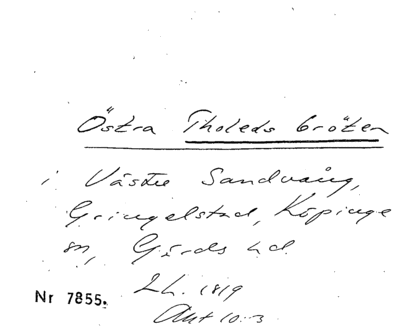 Östra Tholeds bröten
i Västra Sandvång,
Gringelstad, Köpinge
sn, Gärds hd.
Lh. 1819
Akt 10:3
Nr 7855.